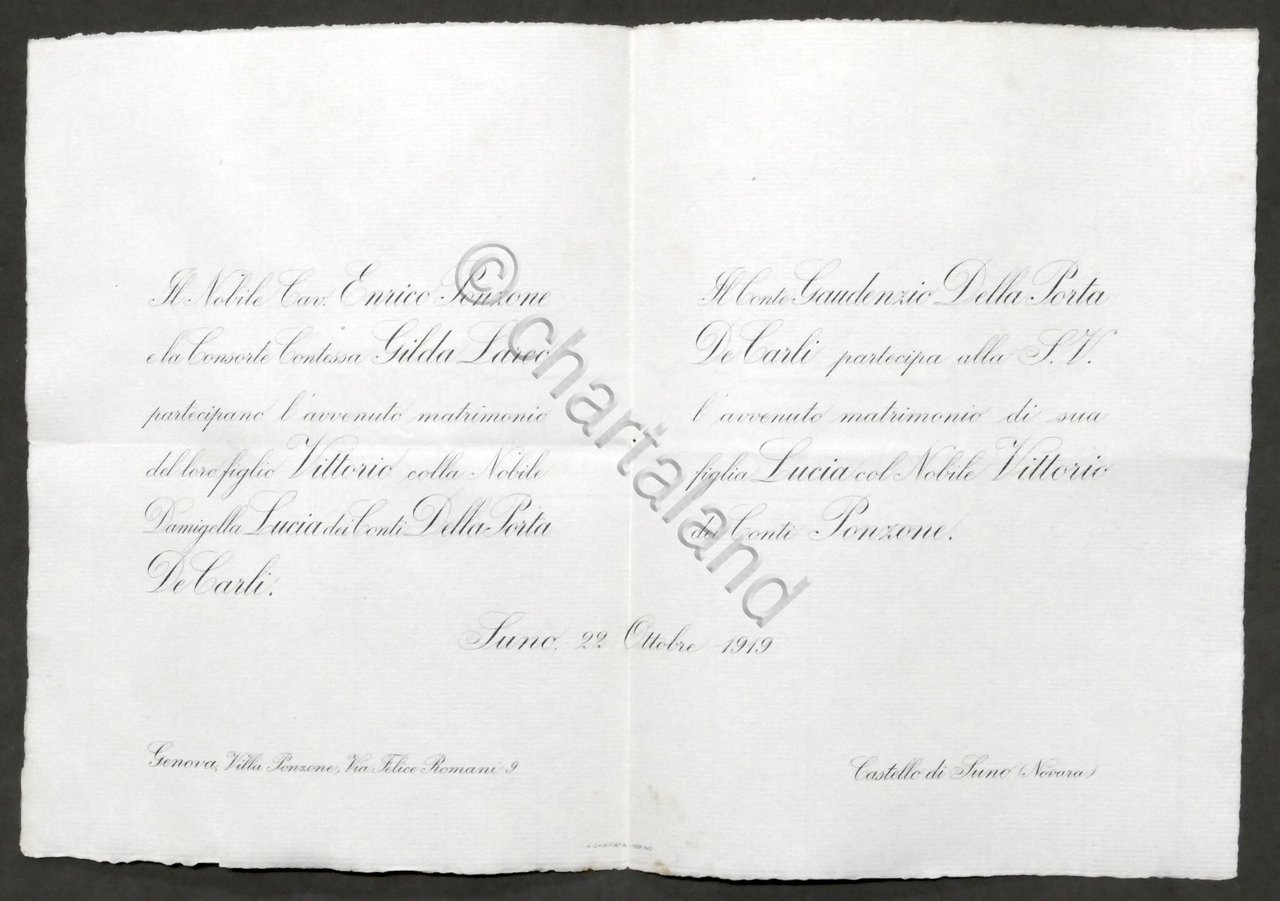 Il Nobile Cav. Enrico Ponzone
e la Consorte Contessa Gilda
partecipano l'avvenuto matrimonio
del loro figlio Vittorio colla Nobile
Damigella Lucia dei Conti Della Porta
De Carli.
Il Conte Gaudenzio Della Porta
De Carli partecipa alla S. V.
l'avvenuto matrimonio di sua
figlia Lucia col Nobile Vittorio
dei Conti Ponzone.
Suno, 22 Ottobre 1919
Genova, Villa Ponzone, Via Felice Romani 9
Castello di Suno (Novara)
© chartaland